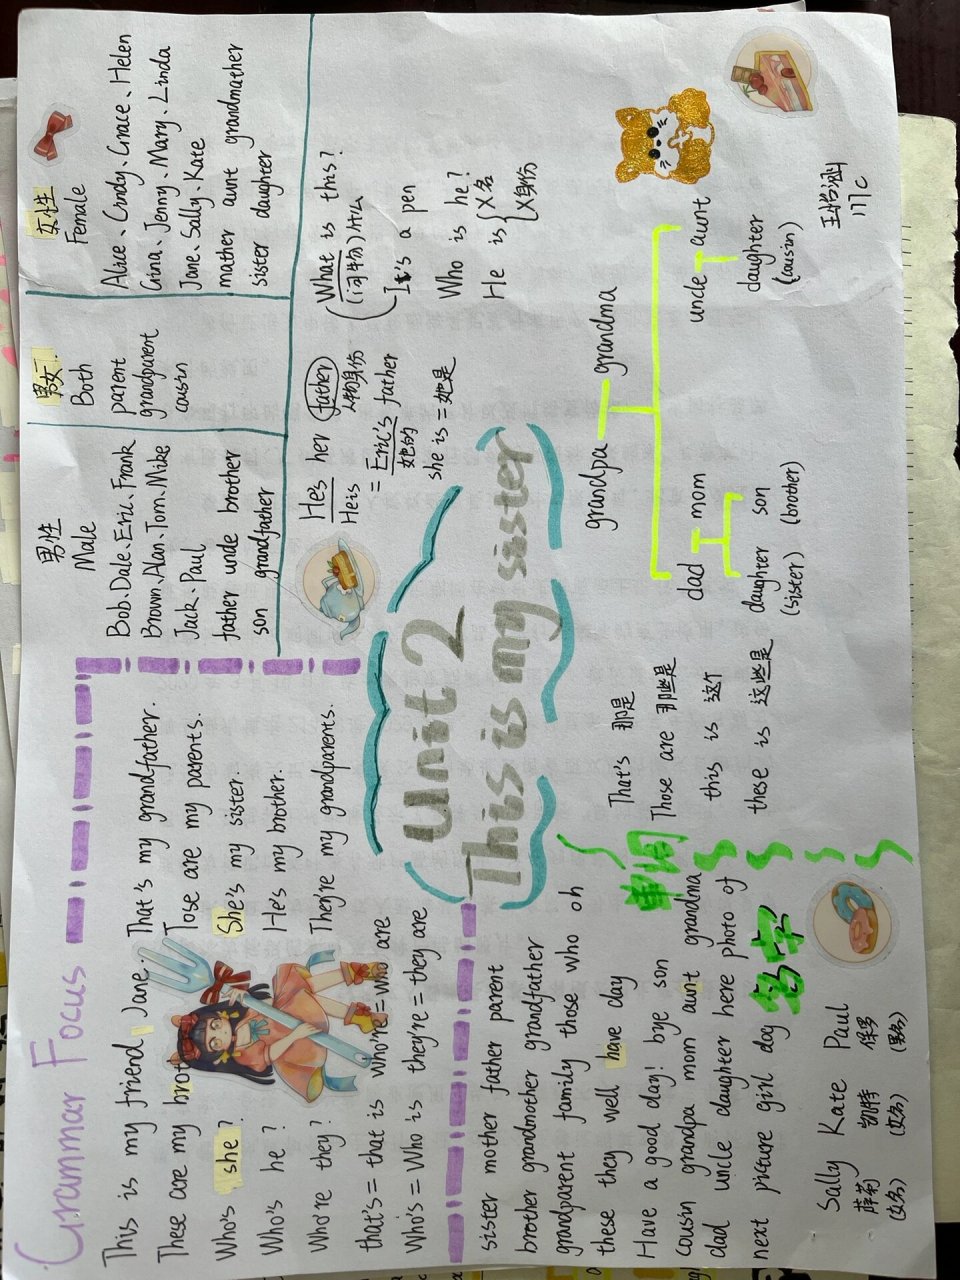 Grammar Focus
This is my friend, Jane. That's my grandfather.
These are my brot Tose are my parents.
Who's she? She's my sister.
Who's he? He's my brother.
Who're they? They're my grandparents.
that's = that is who're = who are
Who's = Who is they're = they are
男性
Male
Bob、Dale、Eric、Frank
Brown、Alan、Tom、Mike
Jack、Paul
father uncle brother
son grandfather
男女
Both
parent
grandparent
cousin
女性
Female
Alice、Cindy、Grace、Helen
Gina、Jenny、Mary、Linda
Jane、Sally、Kate
mather aunt grandmather
sister daughter
He's her father
He is 人物身份
= Eric's father
她的
she is = 她是
What is this?
(问物)什么
It's a pen
Who is he?
He is { X名
X身份
Unit 2
This is my sister
sister mother father parent
brother grandmother grandfather
grandparent family those who oh
these they well have day
Have a good day! bye son
cousin grandpa mom aunt grandma
dad uncle daughter here photo of
next picture girl dog
单词
名字
Sally Kate Paul
薛莉 凯特 保罗
(女名) (女名) (男名)
That's 那是
Those are 那些是
this is 这个
these is 这些是
grandpa grandma
dad mom uncle aunt
daughter son daughter
(sister) (brother) (cousin)